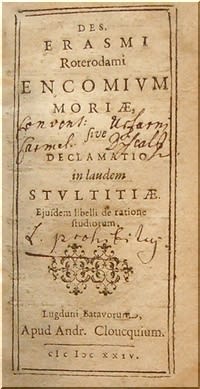 DES.
ERASMI
Roterodami
ENCOMIVM
MORIÆ,
sive
DECLAMATIO
in laudem
STVLTITIÆ.
Ejusdem libelli de ratione
studiorum.
Lugduni Batavorum,
Apud Andr. Cloucquium.
cIɔ Iɔc XXIV.